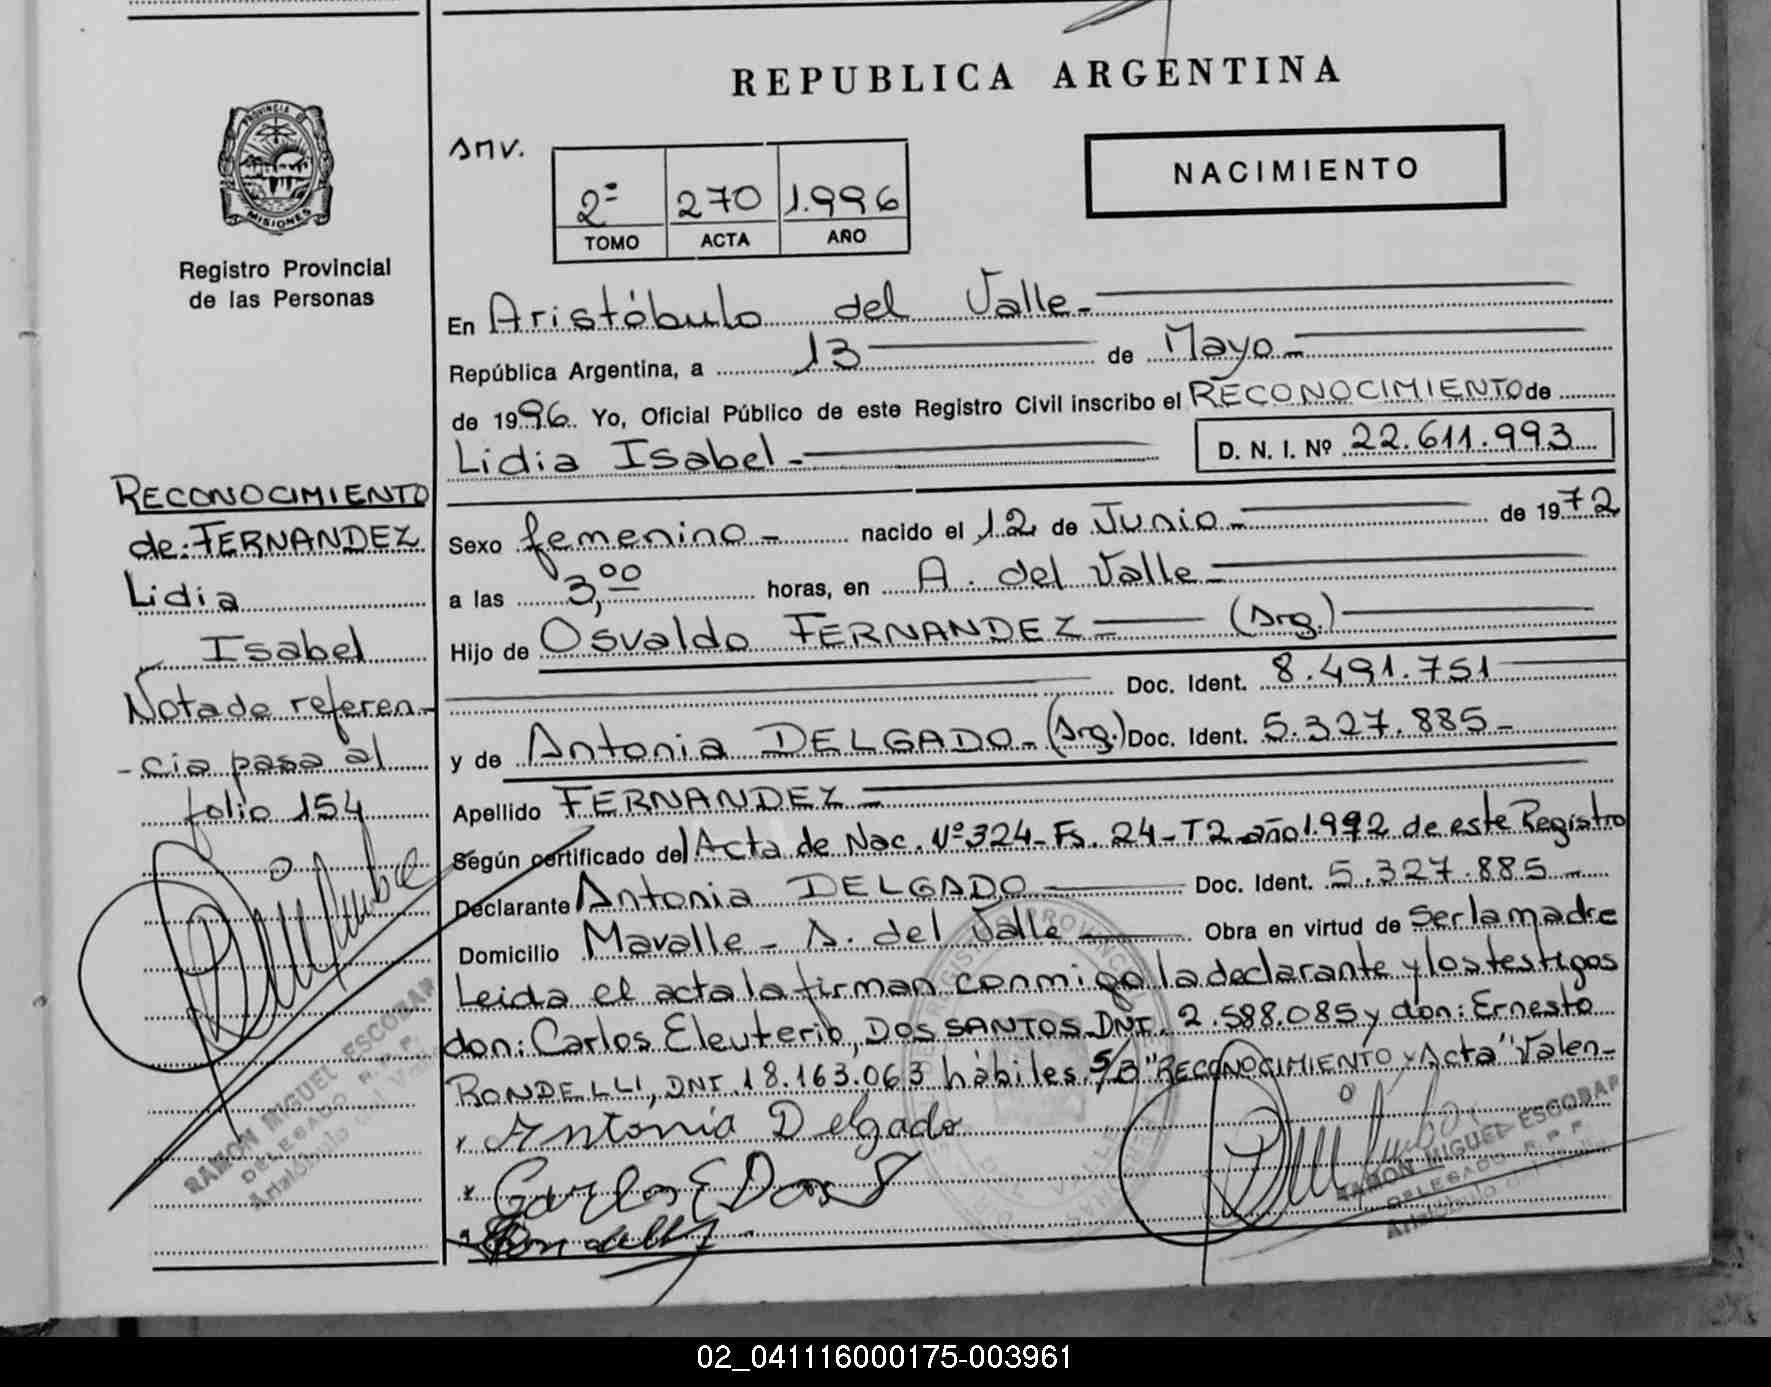 REPUBLICA ARGENTINA
PROVINCIA DE
MISIONES
Registro Provincial
de las Personas
NACIMIENTO
2º 270 1.996
TOMO ACTA AÑO
En Aristóbulo del Valle-
República Argentina, a 13 de Mayo-
de 1996. Yo, Oficial Público de este Registro Civil inscribo el RECONOCIMIENTO de
Lidia Isabel- D. N. I. Nº 22.611.993
Sexo femenino- nacido el 12 de Junio- de 1972
a las 3,00 horas, en A. del Valle-
Hijo de Osvaldo FERNANDEZ- (Arg.)
Doc. Ident. 8.491.751
y de Antonia DELGADO- (Arg.) Doc. Ident. 5.327.885-
Apellido FERNANDEZ-
Según certificado del Acta de Nac. Nº 324- Fs. 24- T2 año 1.992 de este Registro
Declarante Antonia DELGADO Doc. Ident. 5.327.885-
Domicilio Mavalle- A. del Valle- Obra en virtud de Ser la madre
Leida el acta la firman conmigo la declarante y los testigos
don: Carlos Eleuterio, DOS SANTOS DNI. 2.588.085 y don: Ernesto
RONDELLI, DNI. 18.163.063 hábiles. S/B "RECONOCIMIENTO y Acta" Valen-
x Antonia Delgado
x Carlos E Dos S
RAMON MIGUEL ESCOBAR
DELEGADO R.P.P.
Aristóbulo del Valle
RECONOCIMIENTO
de: FERNANDEZ
Lidia
Isabel
Nota de referen-
-cia pasa al
folio 154
RAMON MIGUEL ESCOBAR
DELEGADO R.P.P.
Aristóbulo del Valle
02_041116000175-003961